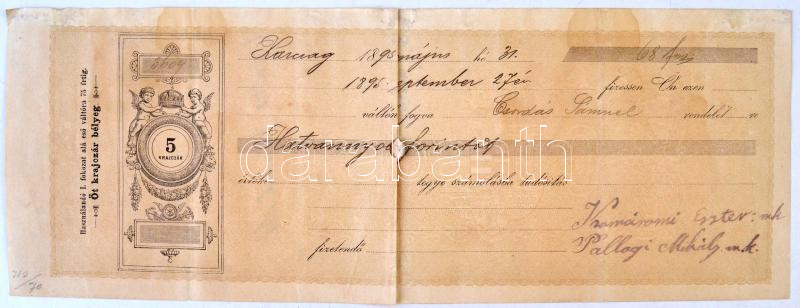 Használandó I. fokozat alá eső váltóra 75 frtig.
Öt krajczár bélyeg
5
KRAJCZÁR
Karczag 1895 május hó 31. 68
1895. september 27én fizessen Ön ezen
váltón fogva Csordás Sámuel rendelet
Hatvannyolc forintot
érték tegye számolásba tudósítás
Komáromi Eszter mk
fizetendő Pallagi Mihály mk.
darabanth